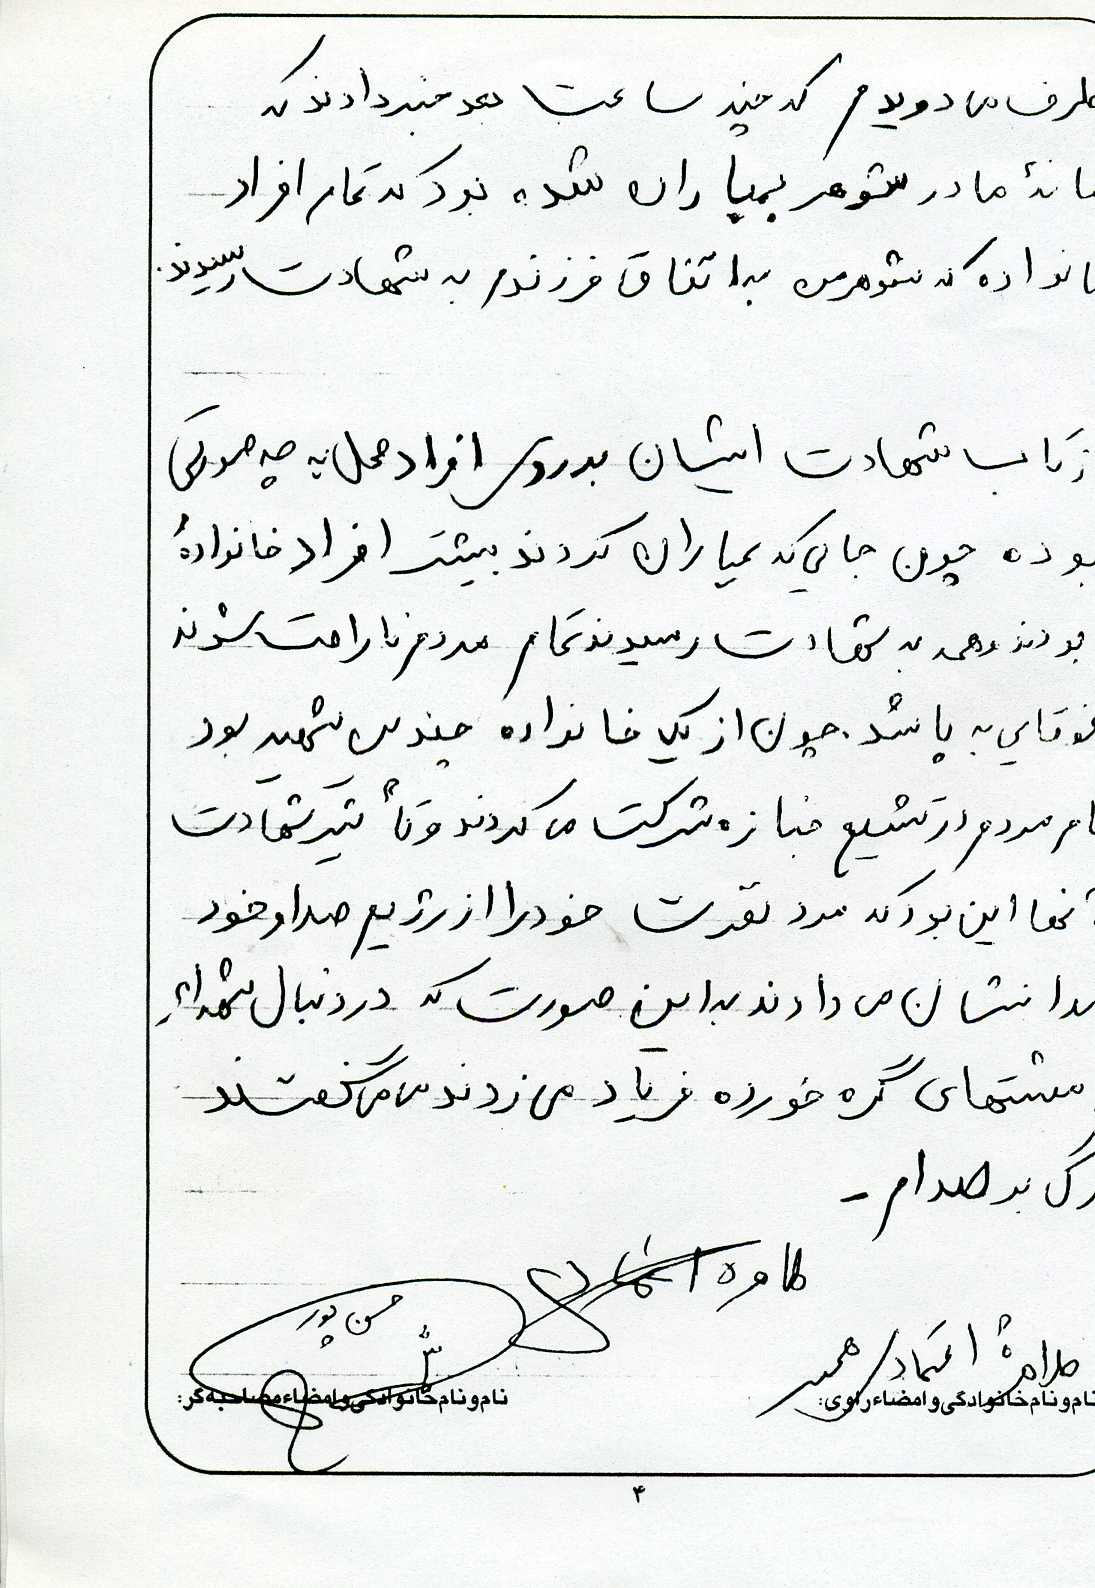 طرف می دویدم که چند ساعت بعد خبر دادند که
انۀ مادر شوهر بمباران شده بود که تمام افراد
انواده که شوهرم به اتفاق فرزندم به شهادت رسیدند.
بازتاب شهادت ایشان بر روی افراد محل به چه صورتی
بوده چون جایی که بمباران کردند بیشتر افراد خانوادۀ
بودند و همه به شهادت رسیدند تمام مردم ناراحت شدند
غوغایی به پا شد. چون از یک خانواده چندین شهید بود
ام مردم در تشییع جنازه شرکت می کردند و تأثیر شهادت
آنها این بود که مردم نفرت خود را از رژیم صدام خود
را نشان می دادند به این صورت که در دنبال شهداء
مشتهای گره خورده فریاد می زدند می گفتند
رگ بر صدام -
طاهره
حسن پور
طاهره اعتمادی
نام و نام خانوادگی و امضاء راوی:
نام و نام خانوادگی و امضاء مصاحبه گر:
۴